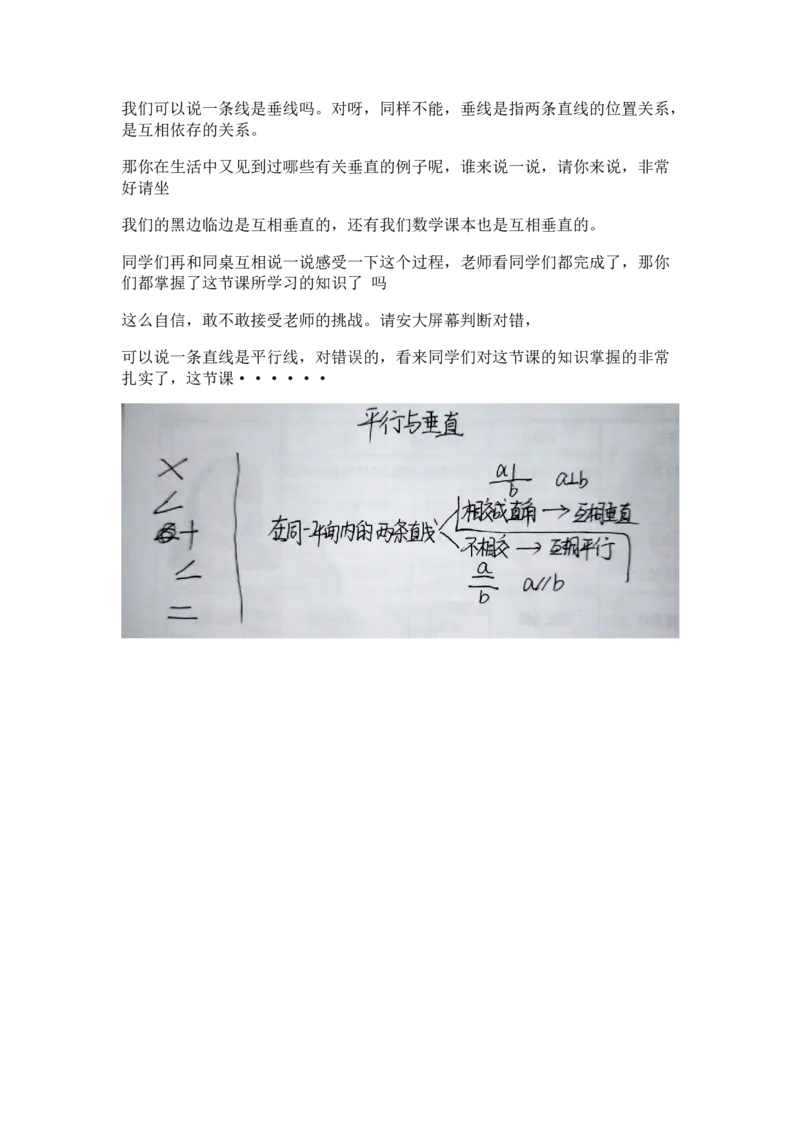 我们可以说一条线是垂线吗。对呀，同样不能，垂线是指两条直线的位置关系，
是互相依存的关系。
那你在生活中又见到过哪些有关垂直的例子呢，谁来说一说，请你来说，非常
好请坐
我们的黑边临边是互相垂直的，还有我们数学课本也是互相垂直的。
同学们再和同桌互相说一说感受一下这个过程，老师看同学们都完成了，那你
们都掌握了这节课所学习的知识了 吗
这么自信，敢不敢接受老师的挑战。请安大屏幕判断对错，
可以说一条直线是平行线，对错误的，看来同学们对这节课的知识掌握的非常
扎实了，这节课······
平行与垂直
a b a⊥b
在同一平面内的两条直线
相交成直角→互相垂直
不相交→互相平行
a b a//b